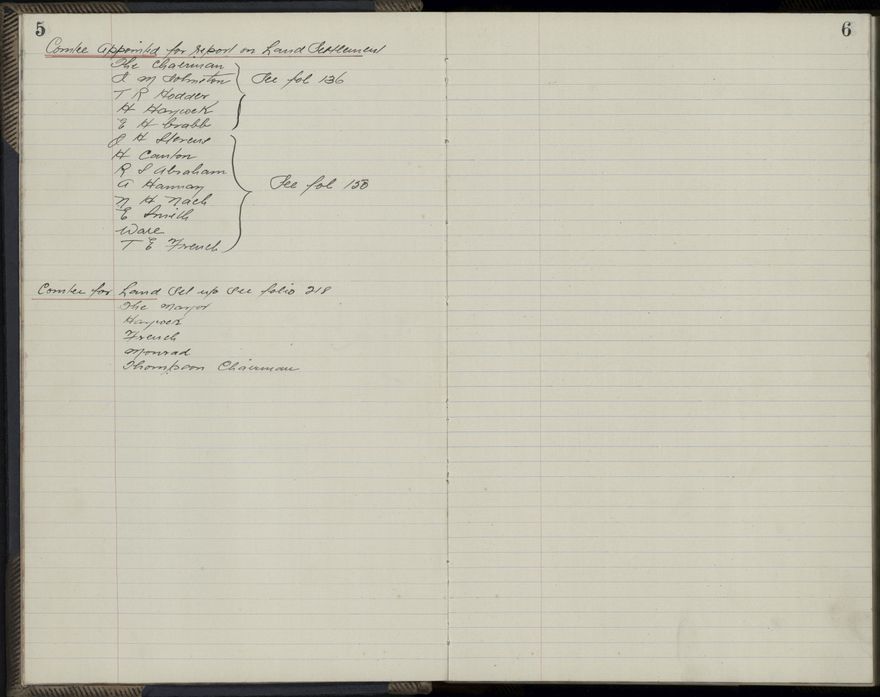 5
6
Comtee Appointed for report on Land Settlement
The Chairman
J M Johnston See fol 136
T R Hodder
H Haycock
E H Crabb
J H Stevens
H Canton
R S Abraham
A Hannay See fol 158
N H Nash
E Smith
Ware
T E French
Comtee for Land Set up See folio 218
The Mayor
Haycock
French
Monrad
Thompson Chairman